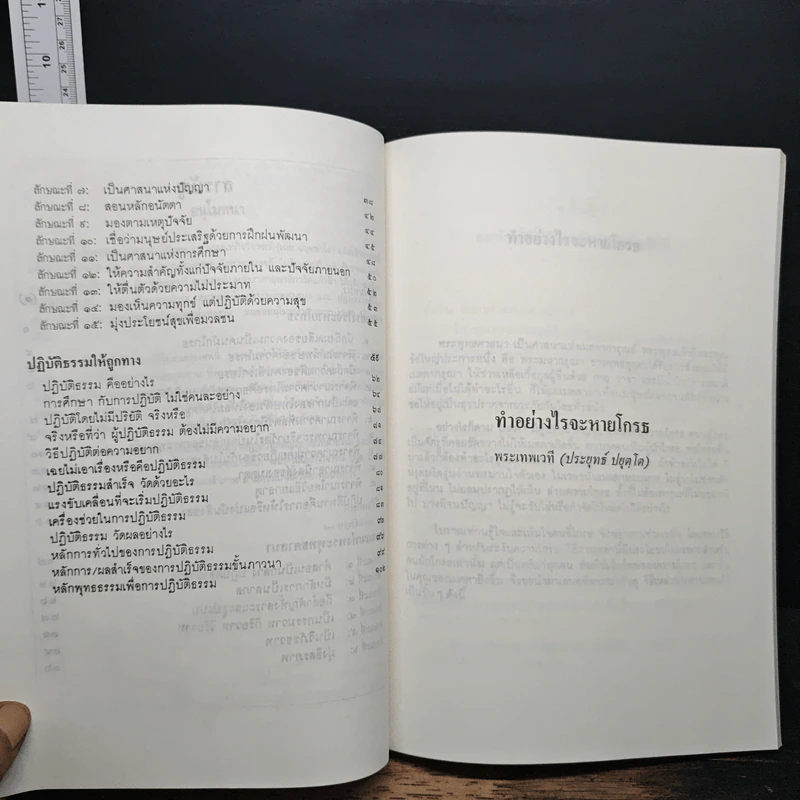 10
27
26
25
24
ลักษณะที่ ๗: เป็นศาสนาแห่งปัญญา ๓๘
ลักษณะที่ ๘: สอนหลักอนัตตา ๔๒
ลักษณะที่ ๙: มองตามเหตุปัจจัย ๔๔
ลักษณะที่ ๑๐: เชื่อว่ามนุษย์ประเสริฐด้วยการฝึกฝนพัฒนา ๔๕
ลักษณะที่ ๑๑: เป็นศาสนาแห่งการศึกษา ๔๘
ลักษณะที่ ๑๒: ให้ความสำคัญทั้งแก่ปัจจัยภายใน และปัจจัยภายนอก ๕๐
ลักษณะที่ ๑๓: ให้ตื่นตัวด้วยความไม่ประมาท ๕๒
ลักษณะที่ ๑๔: มองเห็นความทุกข์ แต่ปฏิบัติด้วยความสุข ๕๓
ลักษณะที่ ๑๕: มุ่งประโยชน์สุขเพื่อมวลชน ๕๕
ปฏิบัติธรรมให้ถูกทาง ๕๙
ปฏิบัติธรรม คืออย่างไร ๖๒
การศึกษา กับการปฏิบัติ ไม่ใช่คนละอย่าง ๖๔
ปฏิบัติโดยไม่มีปริยัติ จริงหรือ ๖๘
จริงหรือที่ว่า ผู้ปฏิบัติธรรม ต้องไม่มีความอยาก
วิธีปฏิบัติต่อความอยาก
เฉยไม่เอาเรื่องหรือคือปฏิบัติธรรม
ปฏิบัติธรรมสำเร็จ วัดด้วยอะไร
แรงขับเคลื่อนที่จะเริ่มปฏิบัติธรรม
เครื่องช่วยในการปฏิบัติธรรม
ปฏิบัติธรรม วัดผลอย่างไร
หลักการทั่วไปของการปฏิบัติธรรม
หลักการ/ผลสำเร็จของการปฏิบัติธรรมขั้นภาวนา
หลักพุทธธรรมเพื่อการปฏิบัติธรรม
ทำอย่างไรจะหายโกรธ
พระเทพเวที (ประยุทธ์ ปยุตฺโต)